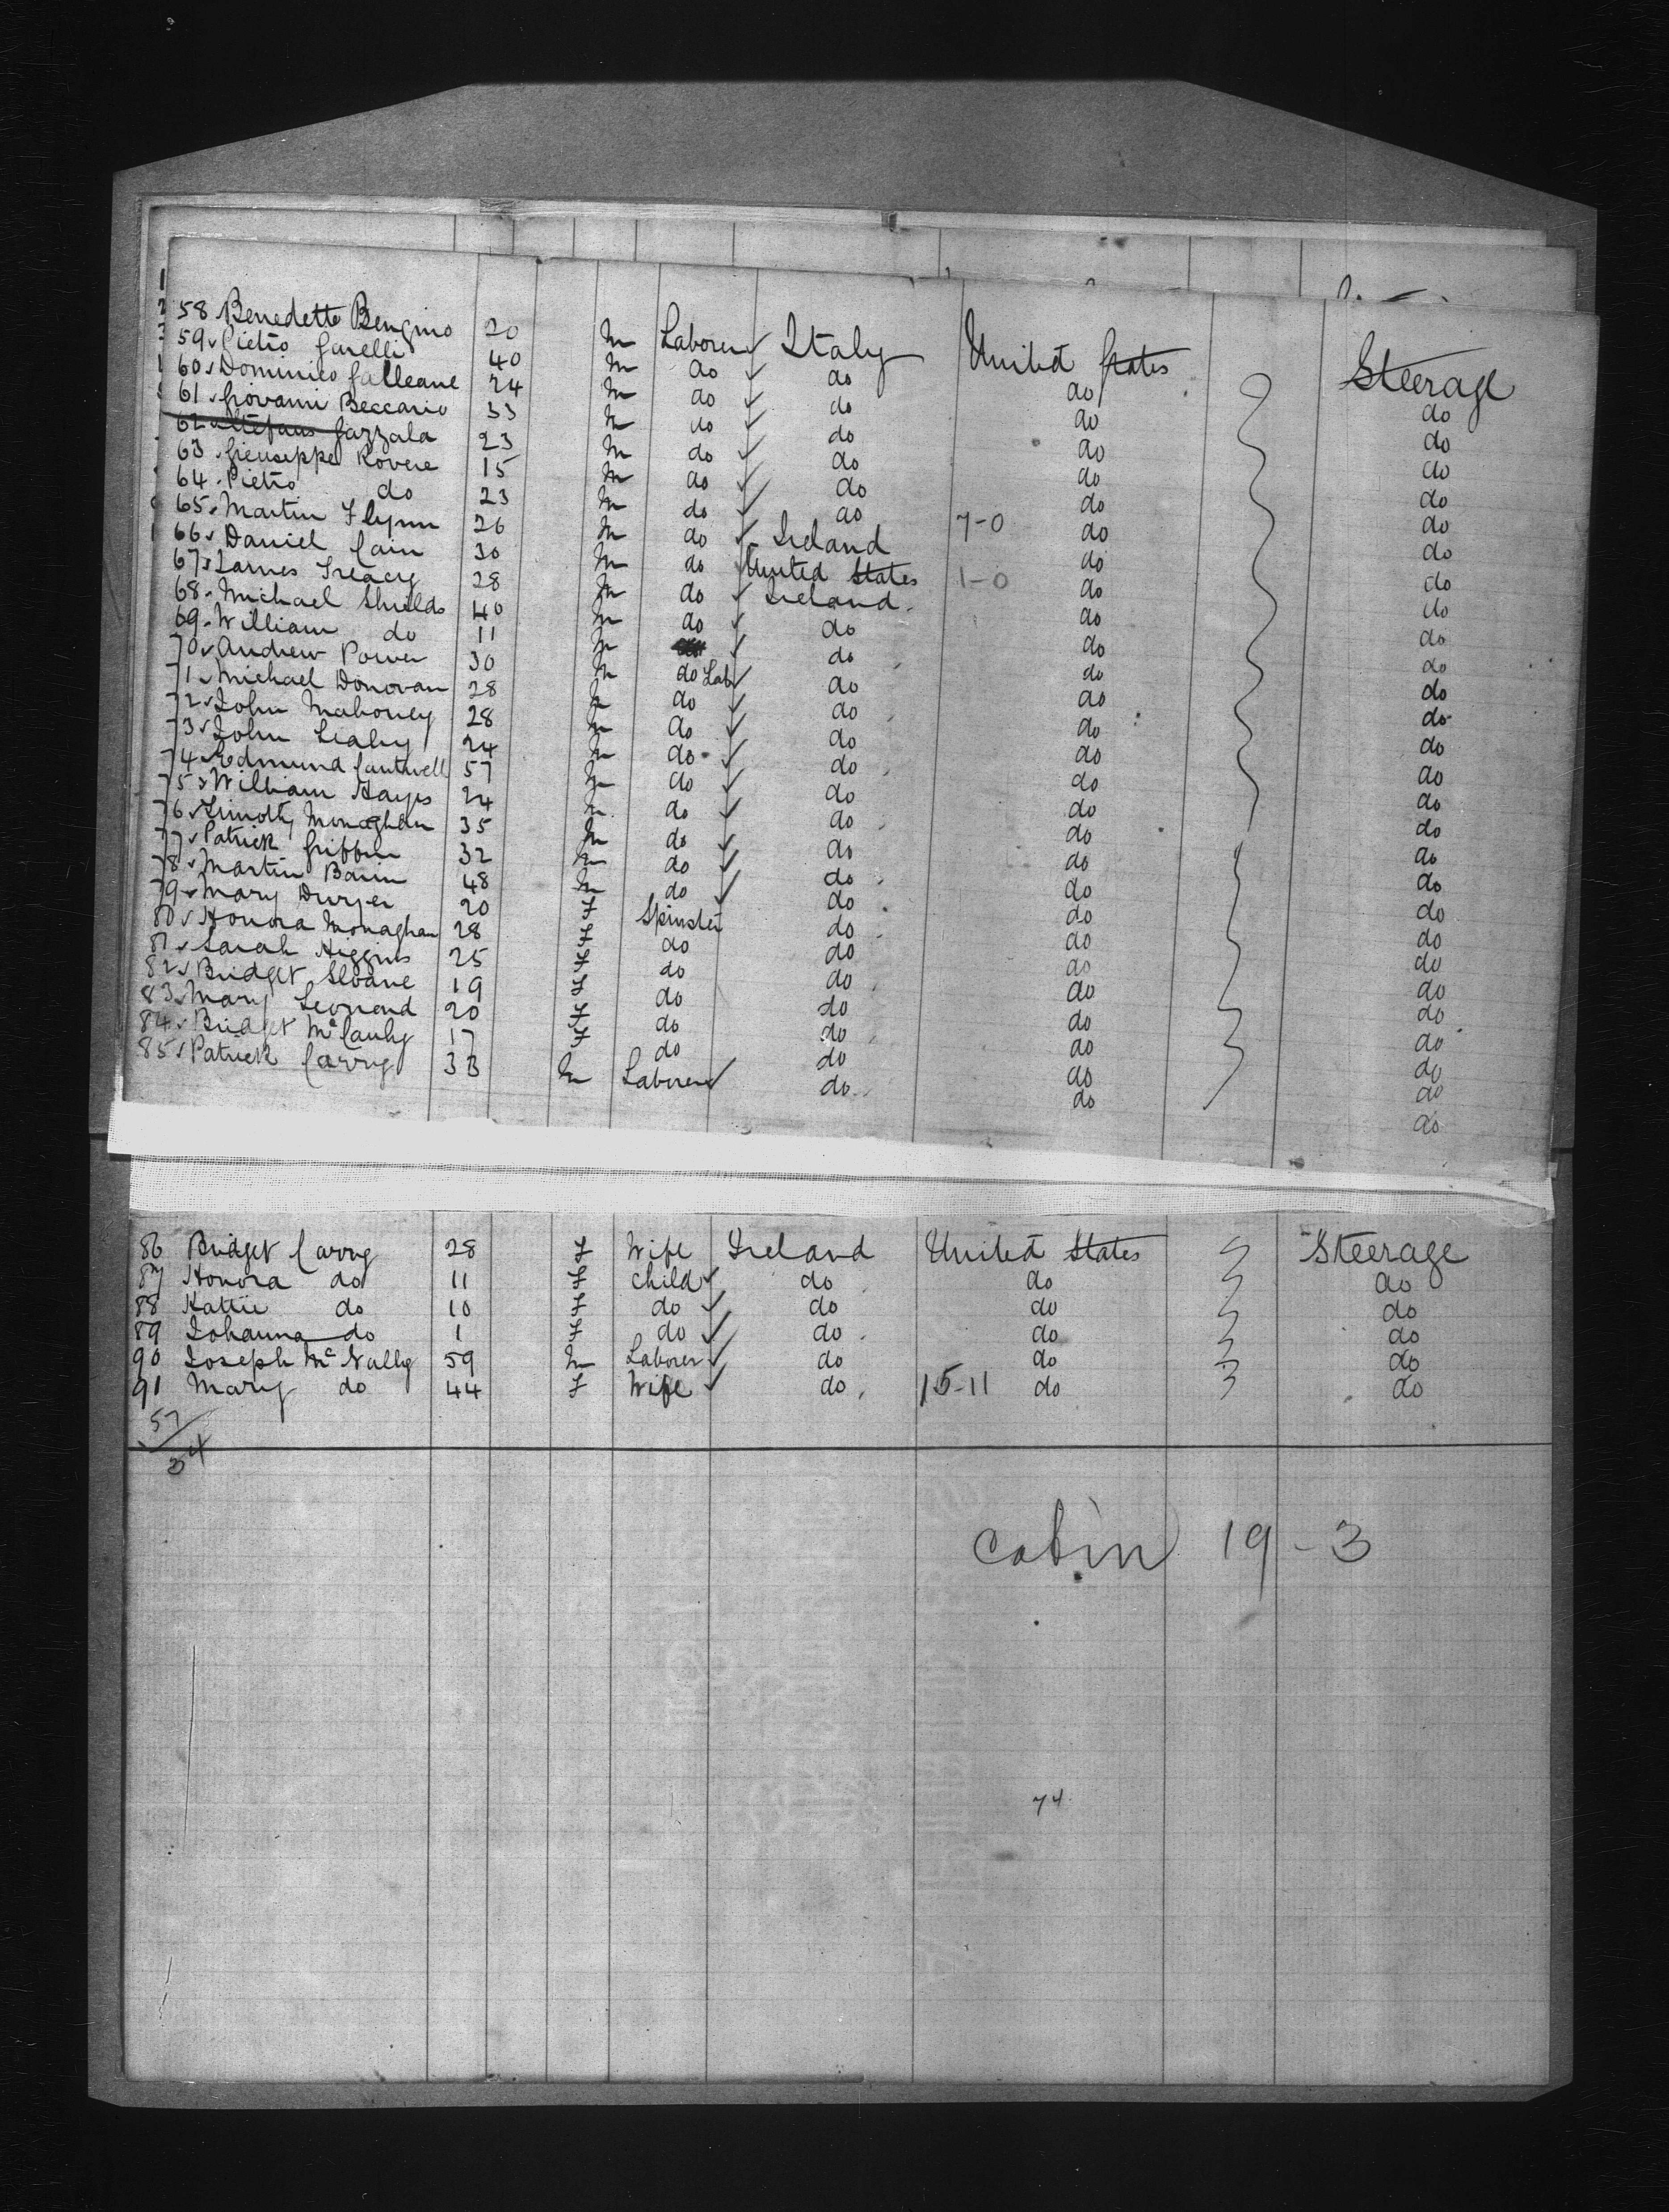 58 Benedetto Bengino 20 m Laborer Italy United States Steerage
59 Pietro Garelli 40 m do do do do
60 Dominico Galleane 24 m do do do do
61 Giovanni Beccario 33 m do do do do
62 Stefano Gazzala 23 m do do do do
63 Giuseppe Rovere 15 m do do do do
64 Pietro do 23 m do do do do
65 Martin Flynn 26 m do Ireland 7-0 do do
66 Daniel Cain 30 m do United States 1-0 do do
67 James Treacy 28 m do Ireland do do
68 Michael Shields 40 m do do do do
69 William do 11 m do do do
70 Andrew Power 30 m do Lab do do do
71 Michael Donovan 28 m do do do do
72 John Mahoney 28 m do do do do
73 John Leahy 24 m do do do do
74 Edmund Cantwell 57 m do do do do
75 William Hayes 24 m do do do do
76 Timothy Monaghan 35 m do do do do
77 Patrick Griffin 32 m do do do do
78 Martin Bann 48 m do do do do
79 Mary Dwyer 20 F Spinster do do do
80 Honora Monaghan 28 F do do do do
81 Sarah Higgins 25 F do do do do
82 Bridget Sloane 19 F do do do do
83 Mary Leonard 20 F do do do do
84 Bridget McCauly 17 F do do do do
85 Patrick Carry 33 m Laborer do do do
86 Bridget Carry 28 F Wife Ireland United States Steerage
87 Honora do 11 F child do do do
88 Kattie do 10 F do do do do
89 Johanna do 1 F do do do do
90 Joseph McNally 59 m Laborer do do do
91 Mary do 44 F Wife do 15-11 do do
57
34
Cabin 19-3
74